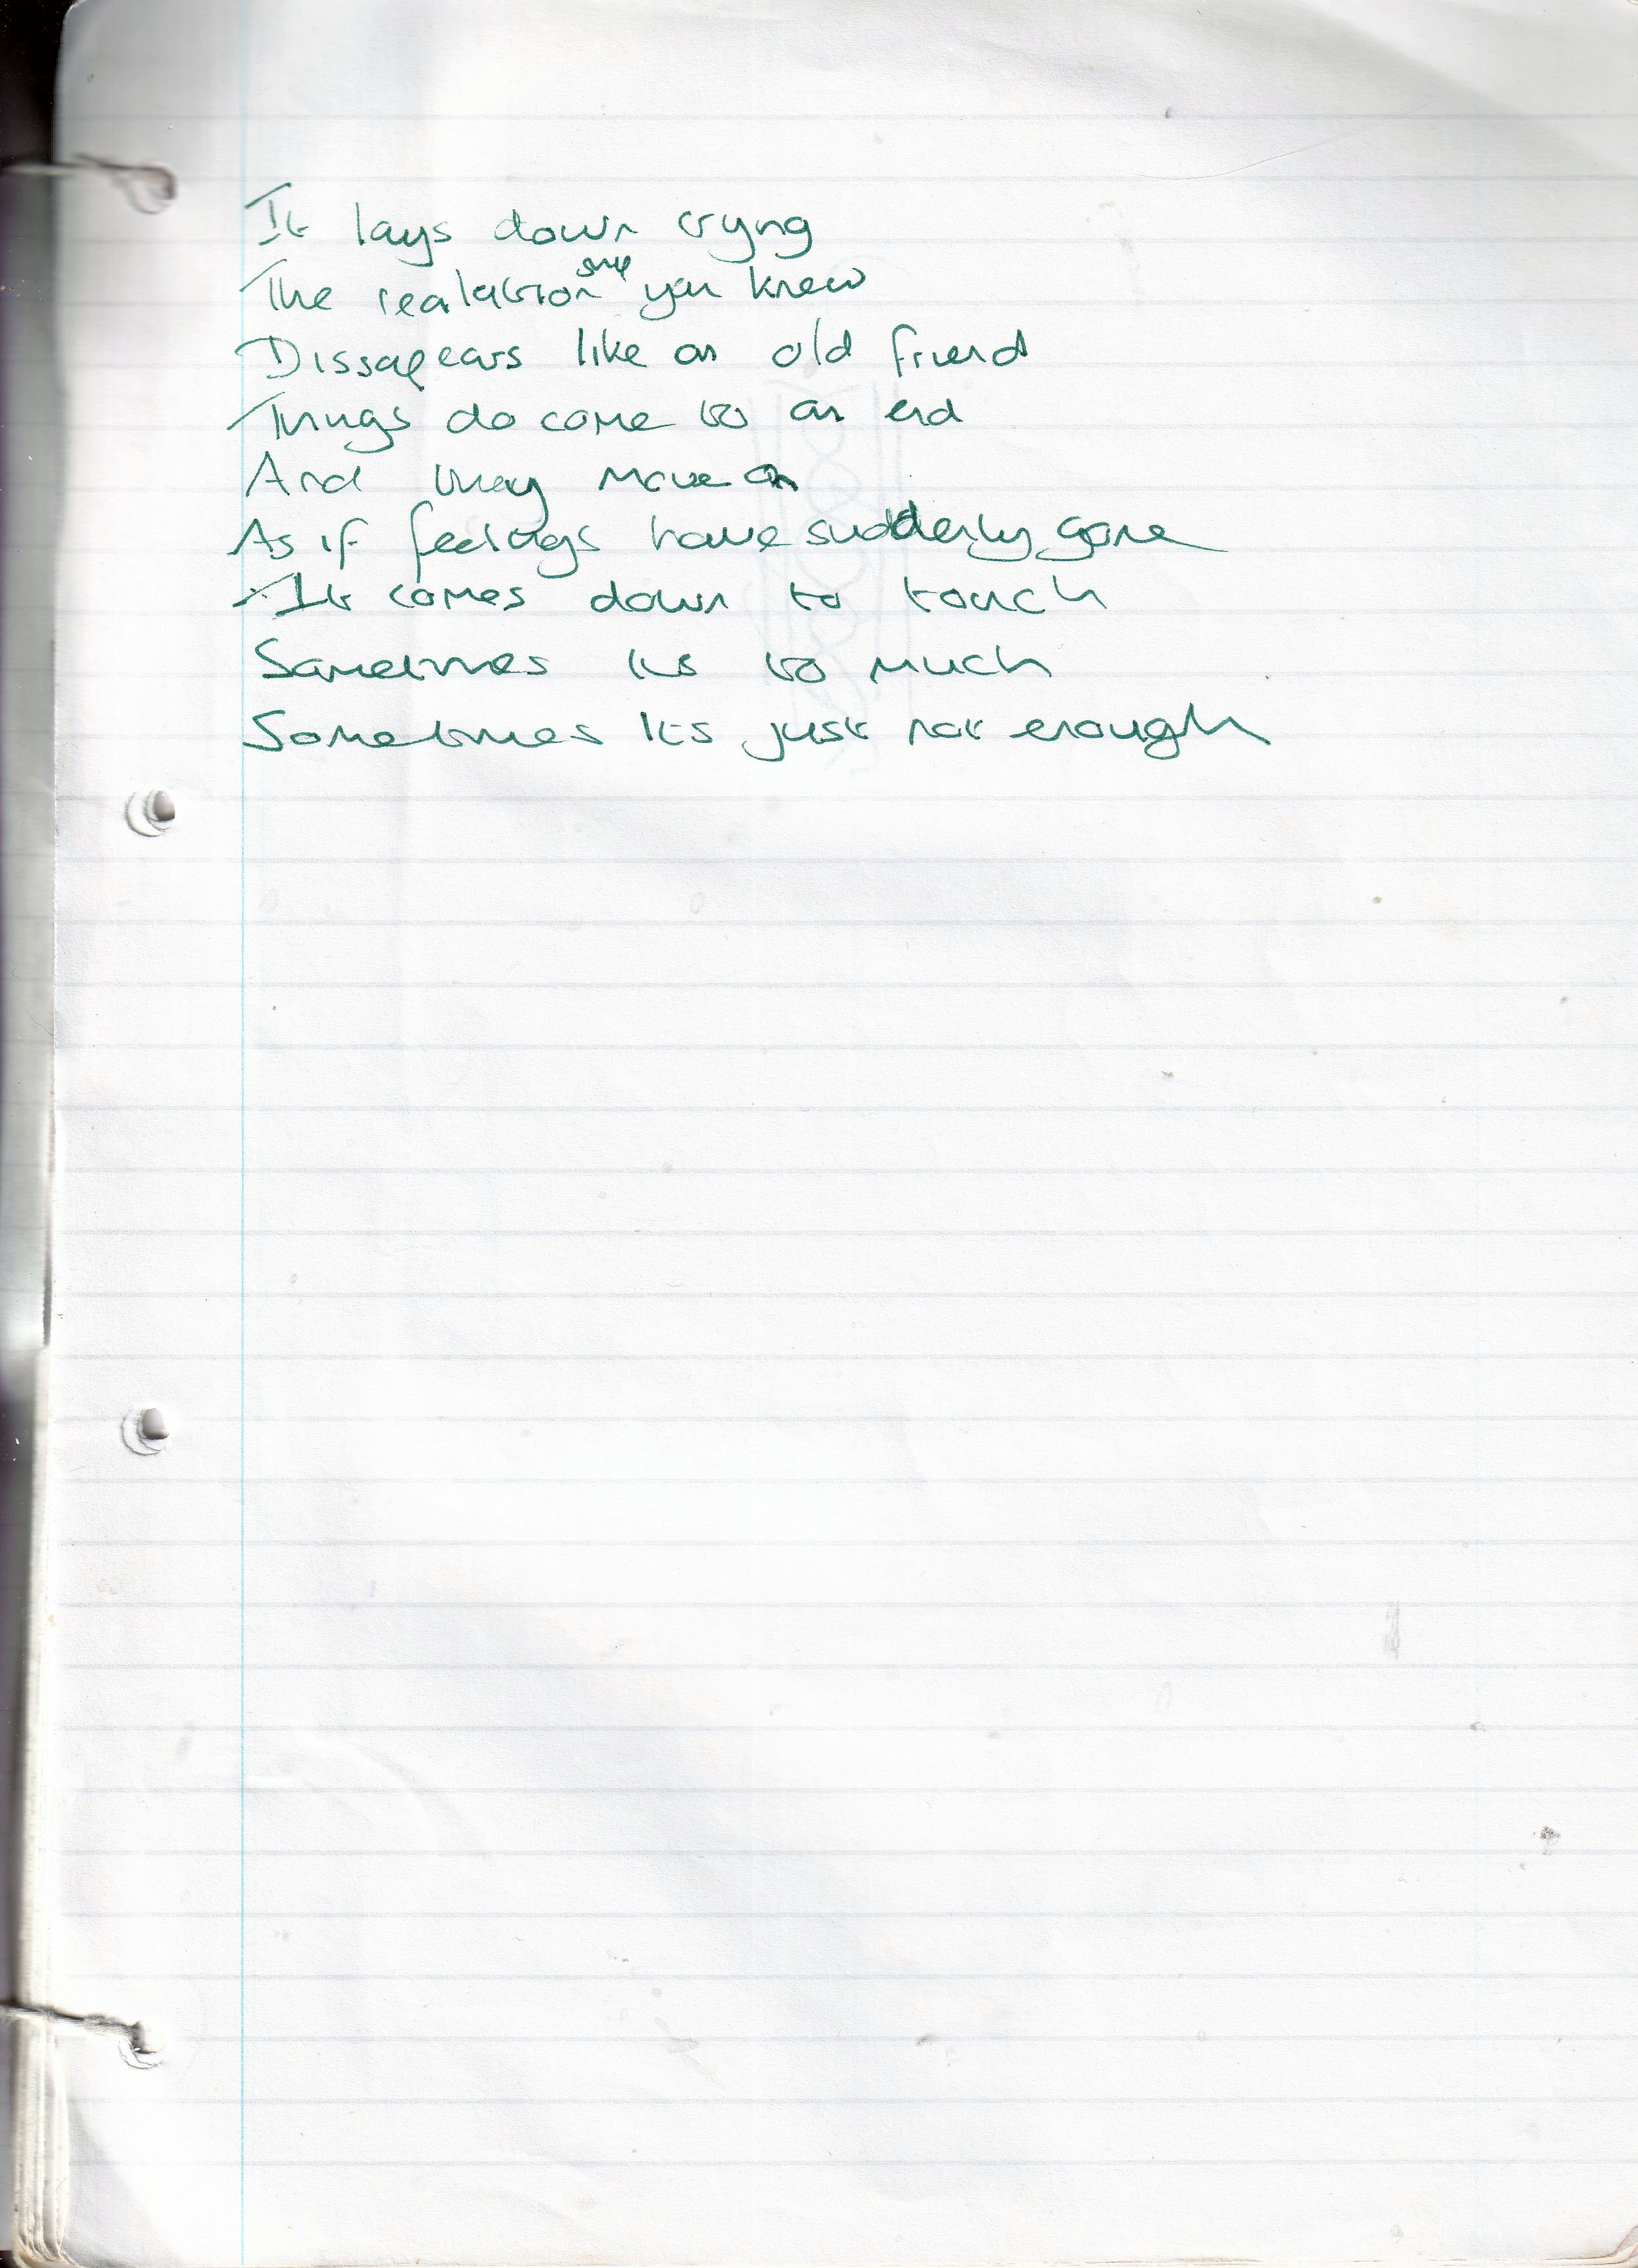 It lays down cryng
The realationship you knew
Dissapears like an old friend
Things do come to an end
And they move on
As if feelings have suddenly gone
It comes down to touch
Sometimes its to much
Sometimes its just not enough